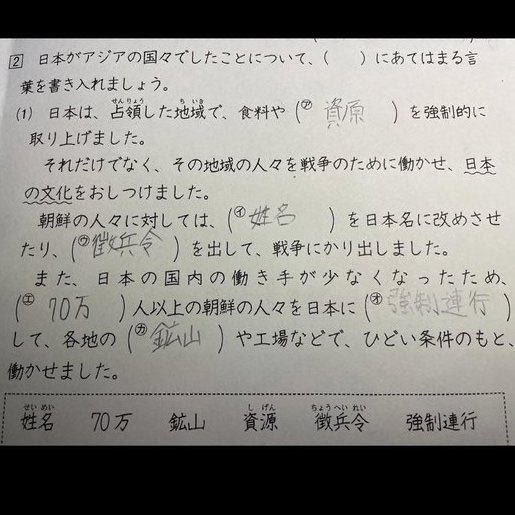 2 日本がアジアの国々でしたことについて、( )にあてはまる言
葉を書き入れましょう。
(1) 日本は、占領した地域で、食料や(㋐ 資原 )を強制的に
取り上げました。
それだけでなく、その地域の人々を戦争のために働かせ、日本
の文化をおしつけました。
朝鮮の人々に対しては、(㋑ 姓名 )を日本名に改めさせ
たり、(㋒ 徴兵令 )を出して、戦争にかり出しました。
また、日本の国内の働き手が少なくなったため、
(㋓ 70万 )人以上の朝鮮の人々を日本に(㋔ 強制連行 )
して、各地の(㋕ 鉱山 )や工場などで、ひどい条件のもと、
働かせました。
姓名 70万 鉱山 資源 徴兵令 強制連行